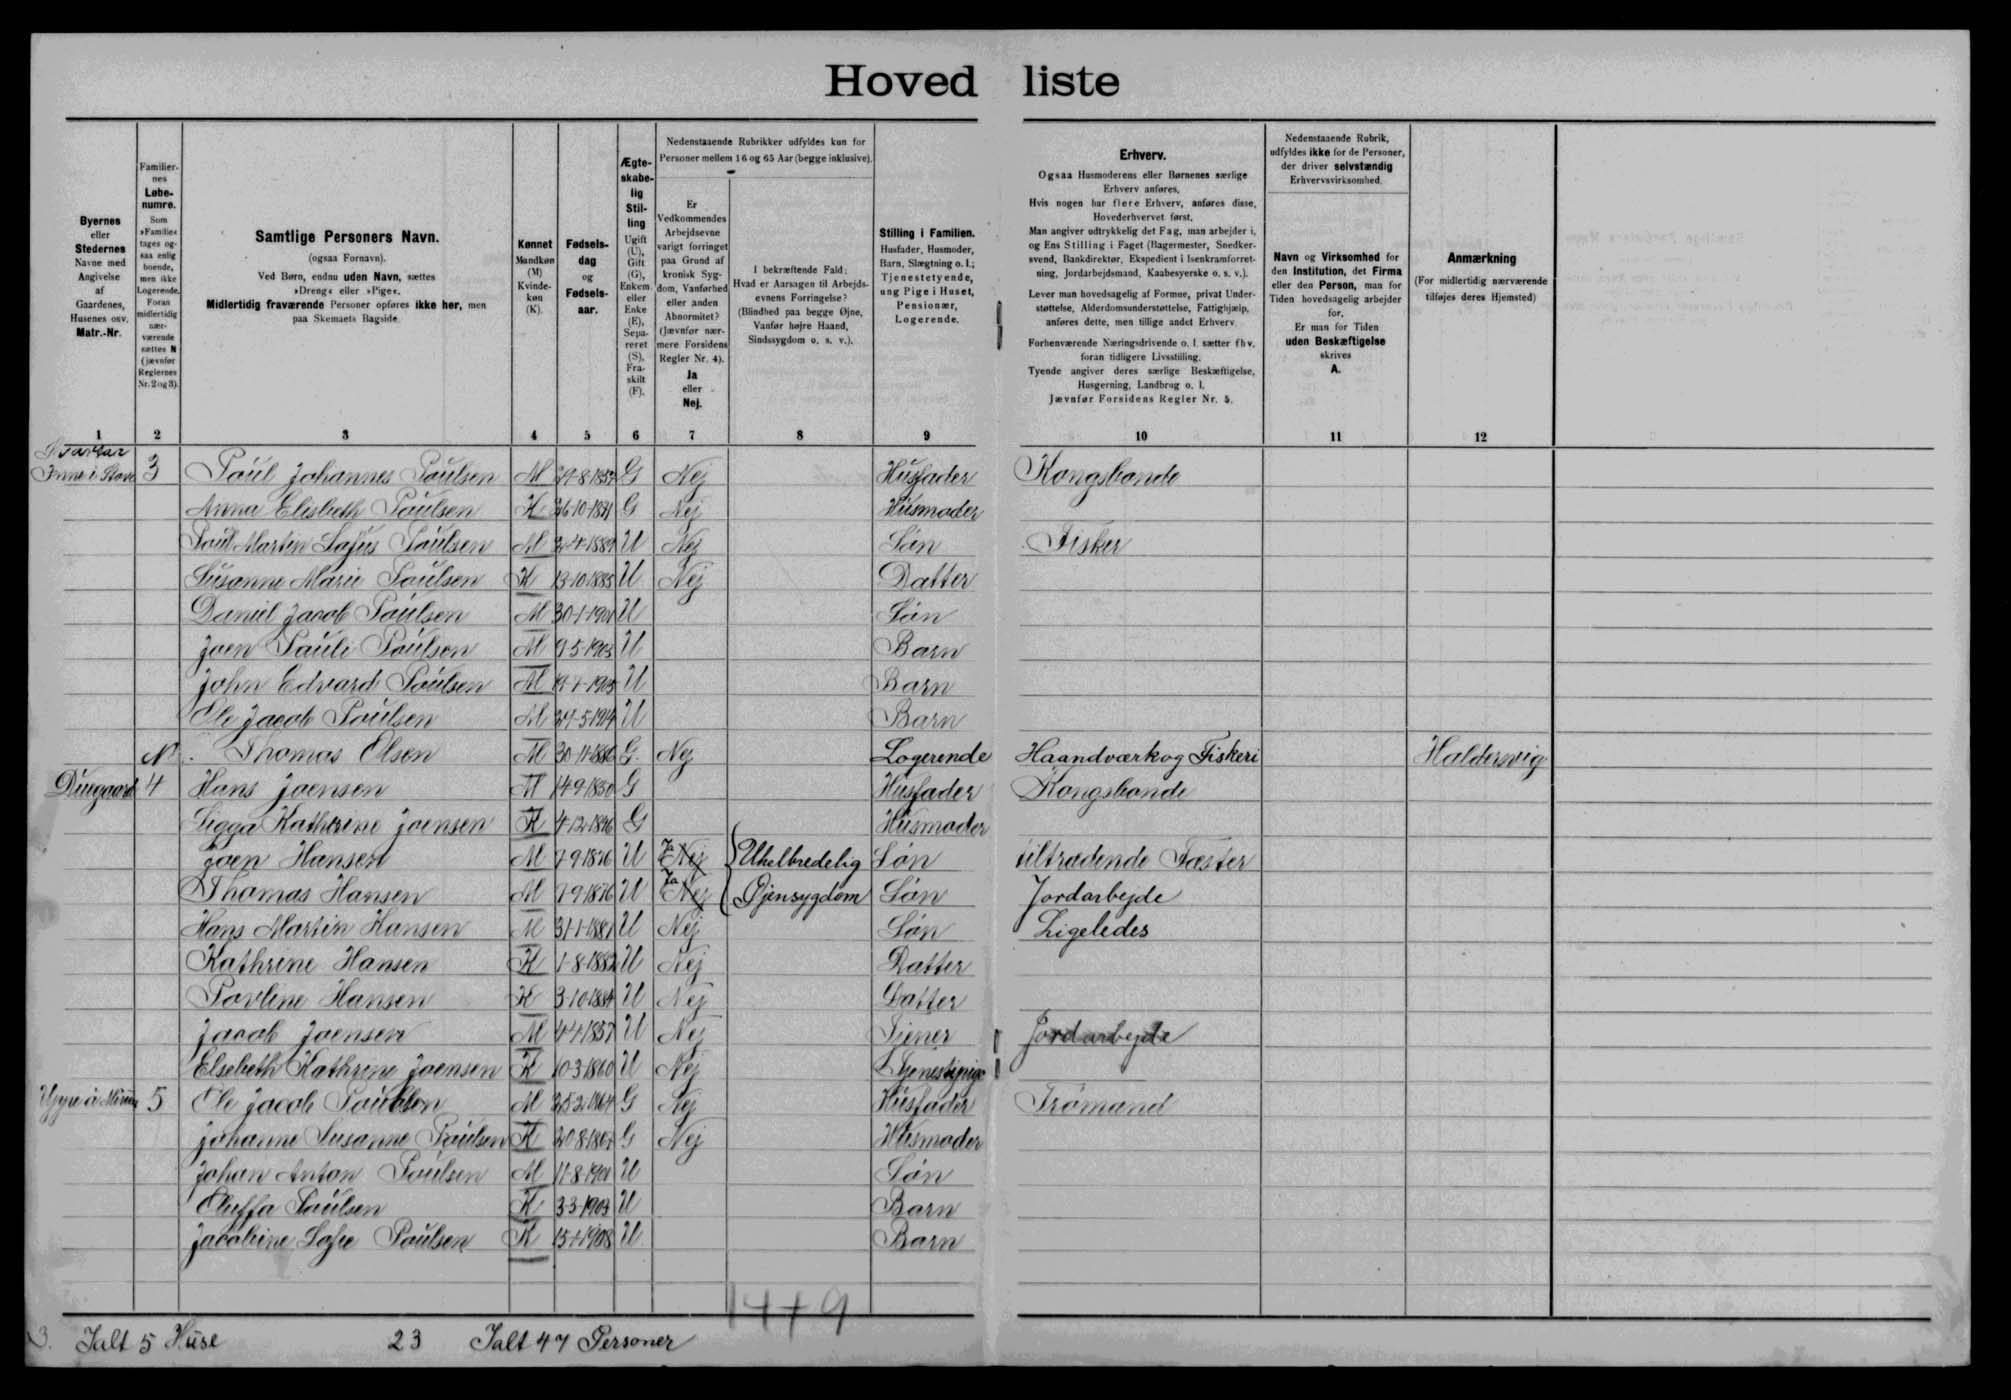 Hovedliste
Byernes eller Stedernes Navne med Angivelse af Gaardenes, Husenes osv. Matr.-Nr.
Familiernes Løbenumre. Som »Familie« tages ogsaa enlig boende, men ikke Logerende. Foran midlertidig nærværende sættes N (jævnfør Reglernes Nr. 2 og 3).
Samtlige Personers Navn.
(ogsaa Fornavn).
Ved Børn, endnu uden Navn, sættes »Dreng« eller »Pige«.
Midlertidig fraværende Personer opføres ikke her, men paa Skemaets Bagside.
Kønnet Mandkøn (M) Kvindekøn (K).
Fødselsdag og Fødselsaar.
Ægteskabelig Stilling Ugift (U), Gift (G), Enkem. eller Enke (E), Separeret (S), Fraskilt (F).
Nedenstaaende Rubrikker udfyldes kun for Personer mellem 16 og 65 Aar (begge inklusive).
Er Vedkommendes Arbejdsevne varigt forringet paa Grund af kronisk Sygdom, Vanførhed eller anden Abnormitet? (Jævnfør nærmere Forsidens Regler Nr. 4). Ja eller Nej.
I bekræftende Fald: Hvad er Aarsagen til Arbejdsevnens Forringelse? (Blindhed paa begge Øjne, Vanfør højre Haand, Sindssygdom o. s. v.).
Stilling i Familien. Husfader, Husmoder, Barn, Slægtning o. l.; Tjenestetyende, ung Pige i Huset, Pensionær, Logerende.
Erhverv.
Ogsaa Husmoderens eller Børnenes særlige Erhverv anføres.
Hvis nogen har flere Erhverv, anføres disse, Hovederhvervet først.
Man angiver udtrykkelig det Fag, man arbejder i, og Ens Stilling i Faget (Bagermester, Snedkersvend, Bankdirektør, Ekspedient i Isenkramforretning, Jordarbejdsmand, Kaabesyerske o. s. v.).
Lever man hovedsagelig af Formue, privat Understøttelse, Alderdomsunderstøttelse, Fattighjælp, anføres dette, men tillige andet Erhverv
Forhenværende Næringsdrivende o. l. sætter fhv. foran tidligere Livsstilling.
Tyende angiver deres særlige Beskæftigelse, Husgerning, Landbrug o. l.
Jævnfør Forsidens Regler Nr. 5.
Nedenstaaende Rubrik, udfyldes ikke for de Personer, der driver selvstændig Erhvervsvirksomhed.
Navn og Virksomhed for den Institution, det Firma eller den Person, man for Tiden hovedsagelig arbejder for.
Er man for Tiden uden Beskæftigelse skrives A.
Anmærkning
(For midlertidig nærværende tilføjes deres Hjemsted)
1 2 3 4 5 6 7 8 9 10 11 12
3 Poul Johannes Poulsen M 29-8-1857 G Nej Husfader Kongsbonde
Anna Elisbeth Poulsen K 26-10-1871 G Nej Husmoder
Poul Martin Lafus Poulsen M U Nej Søn Fisker
Susanne Marie Poulsen K 13-10-1885 U Nej Datter
Daniel Jacob Poulsen M 30-1-1901 U Søn
Joen Pauli Poulsen M 9-5-1903 U Barn
John Edvard Poulsen M U Barn
Ole Jacob Poulsen M U Barn
N Thomas Olsen M 30-11-1886 G. Nej Logerende Haandværk og Fiskeri Haldersvig
Duugaard 4 Hans Joensen M 14-9-1830 G Husfader Kongsbonde
Sigga Kathrine Joensen K 4-12-1846 G Husmoder
Joen Hansen M 7-9-1876 U Ja Nej Uhelbredelig Søn tiltrædende Fæster
Thomas Hansen M 7-9-1876 U Ja Nej Øjensygdom Søn Jordarbejde
Hans Martin Hansen M 31-1-1881 U Nej Søn Ligeledes
Kathrine Hansen K 1-8-1882 U Nej Datter
Povline Hansen K 3-10-1884 U Nej Datter
Jacob Joensen M 4-4-1857 U Nej Tjener Jordarbejde
Elsebeth Kathrine Joensen K 10-3-1860 U Nej Tjenestepige
5 Ole Jacob Poulsen M 25-2-1864 G Nej Husfader Trømand
Johanne Susanne Poulsen K G Nej Husmoder
Johan Anton Poulsen M 11-8-1901 U Søn
Oluffa Poulsen K 3-3-1903 U Barn
Jacobine Sofie Poulsen K U Barn
1479
3. Ialt 5 Huse 23 Ialt 47 Personer